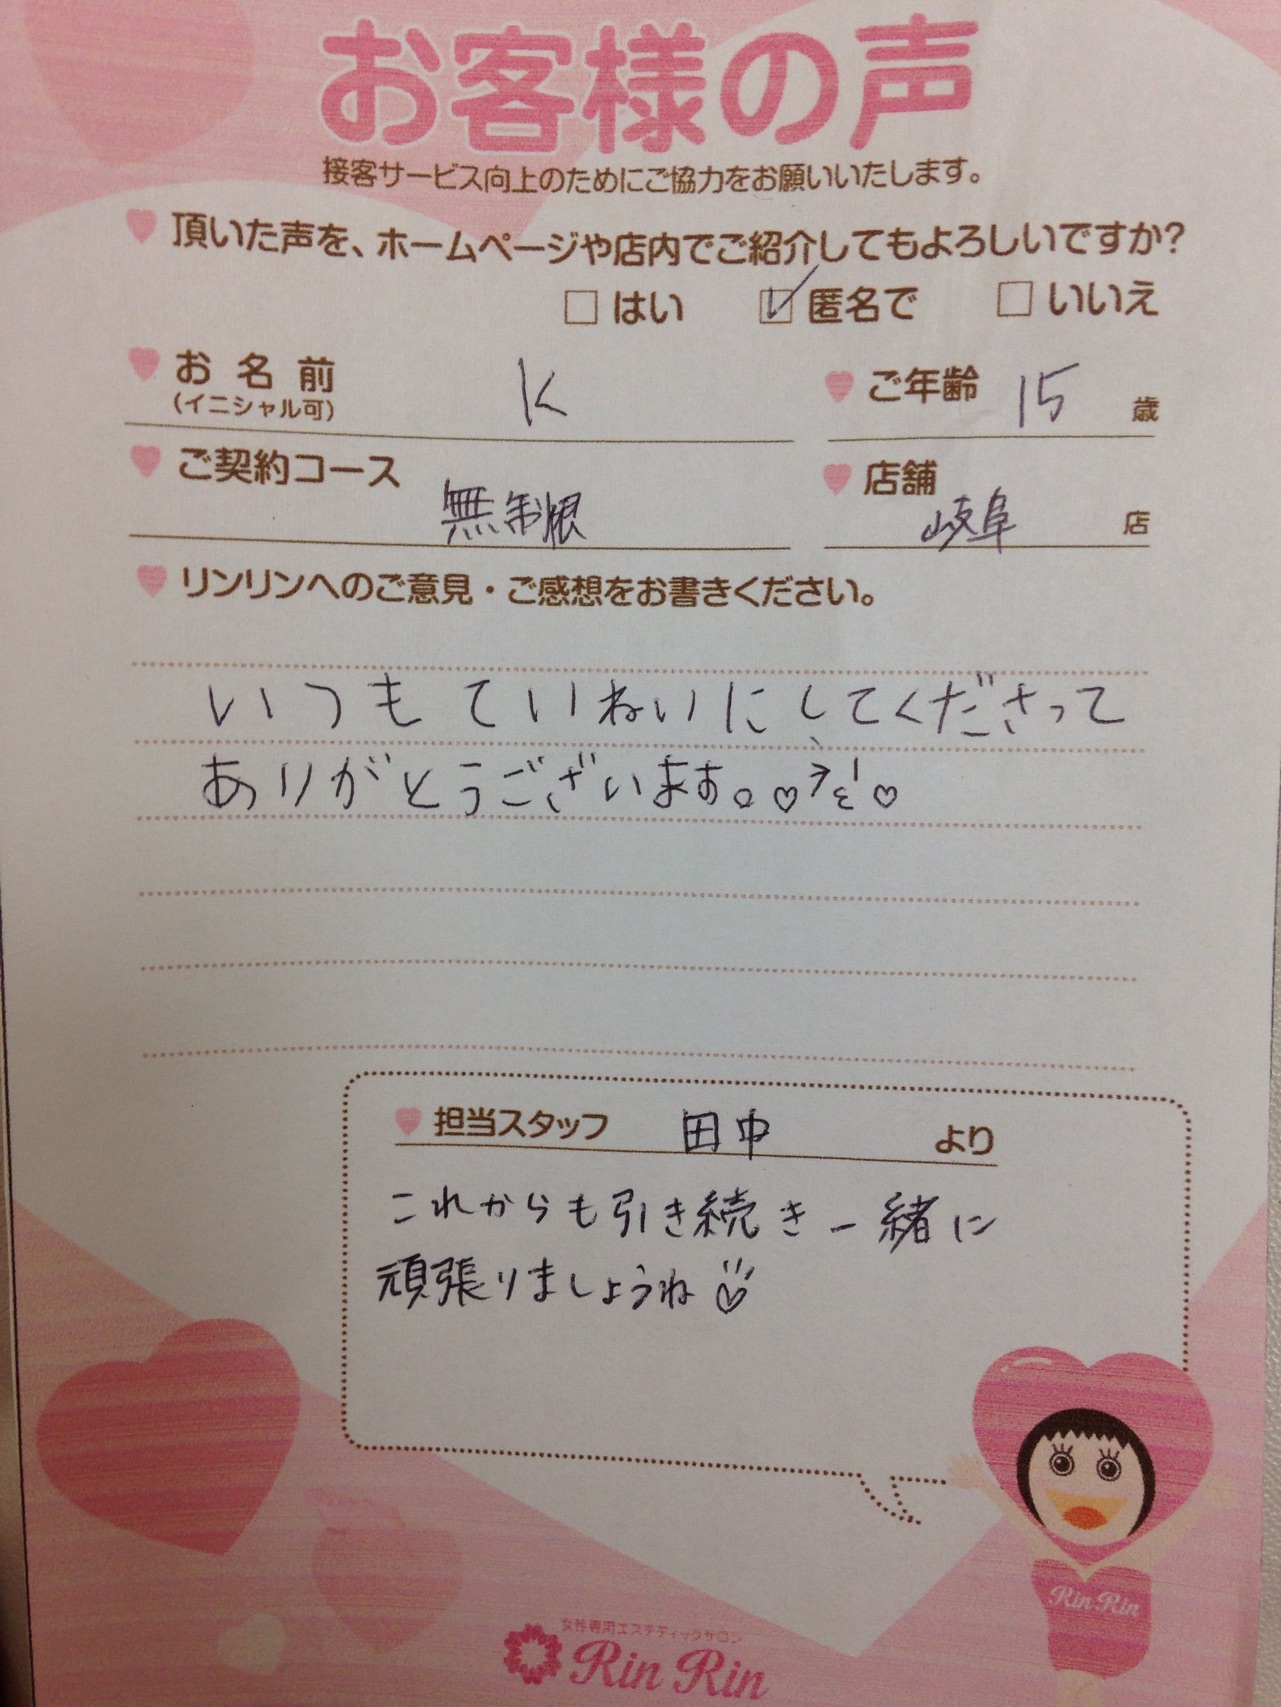 お客様の声
接客サービス向上のためにご協力をお願いいたします。
頂いた声を、ホームページや店内でご紹介してもよろしいですか?
□ はい ☑ 匿名で □ いいえ
お名前 K ご年齢 15 歳
(イニシャル可)
ご契約コース 無制限 店舗 岐阜 店
リンリンへのご意見・ご感想をお書きください。
いつもていねいにしてくださって
ありがとうございます。♡
♡
担当スタッフ 田中 より
これからも引き続き一緒に
頑張りましょうね♡
Rin Rin
女性専用エステティックサロン
Rin Rin